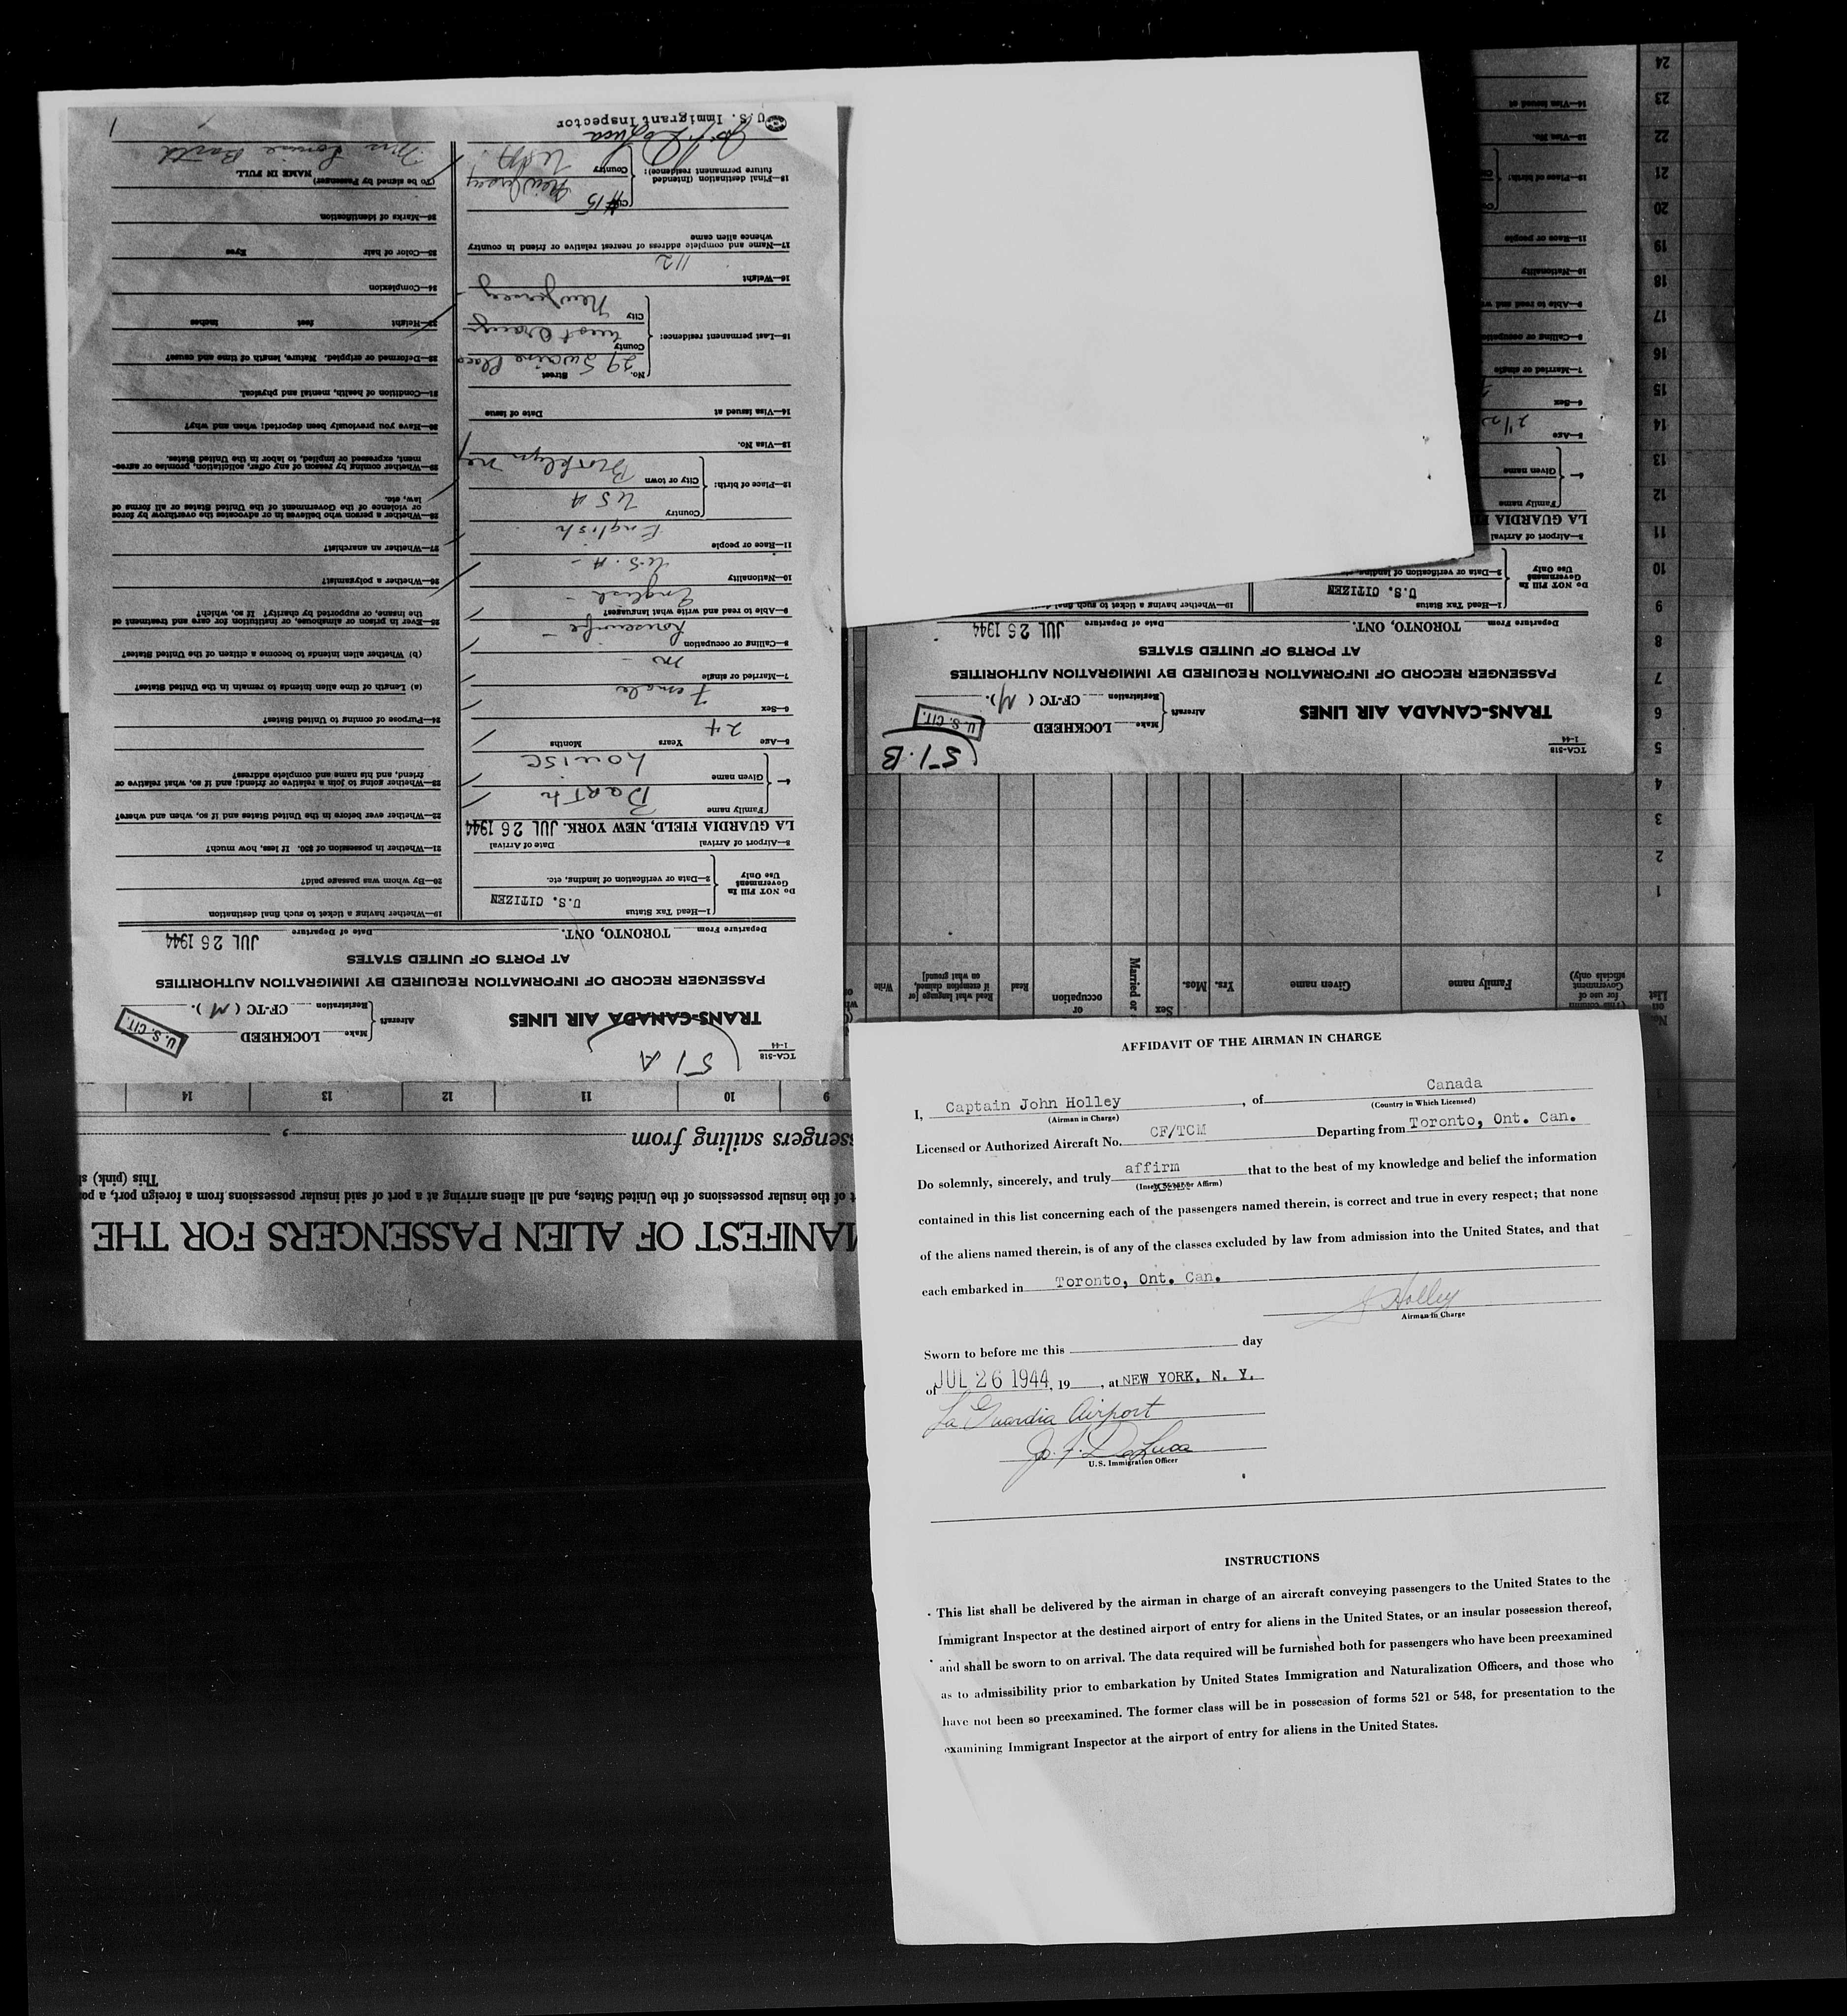 AFFIDAVIT OF THE AIRMAN IN CHARGE
I, Captain John Holley, of Canada
(Airman in Charge) (Country in Which Licensed)
Licensed or Authorized Aircraft No. CF/TCM Departing from Toronto, Ont. Can.
Do solemnly, sincerely, and truly affirm that to the best of my knowledge and belief the information
(Insert Swear or Affirm)
contained in this list concerning each of the passengers named therein, is correct and true in every respect; that none
of the aliens named therein, is of any of the classes excluded by law from admission into the United States, and that
each embarked in Toronto, Ont. Can.
J Holley
Airman in Charge
Sworn to before me this day
of JUL 26 1944, 19 , at NEW YORK, N. Y.
La Guardia Airport
Jo. F. DeLuca
U.S. Immigration Officer
INSTRUCTIONS
This list shall be delivered by the airman in charge of an aircraft conveying passengers to the United States to the
Immigrant Inspector at the destined airport of entry for aliens in the United States, or an insular possession thereof,
and shall be sworn to on arrival. The data required will be furnished both for passengers who have been preexamined
as to admissibility prior to embarkation by United States Immigration and Naturalization Officers, and those who
have not been so preexamined. The former class will be in possession of forms 521 or 548, for presentation to the
examining Immigrant Inspector at the airport of entry for aliens in the United States.
MANIFEST OF ALIEN PASSENGERS FOR THE
t of the insular possessions of the United States, and all aliens arriving at a port of said insular possessions from a foreign port, a po
This (pink) s
sengers sailing from ,
9 10 11 12 13 14
TCA-518
1-44
51A
TRANS-CANADA AIR LINES
Aircraft { Make LOCKHEED
Registration CF-TC ( M ).
U. S. CIT.
PASSENGER RECORD OF INFORMATION REQUIRED BY IMMIGRATION AUTHORITIES
AT PORTS OF UNITED STATES
Departure From TORONTO, ONT. Date of Departure JUL 26 1944
Do NOT Fill In
Government
Use Only
1—Head Tax Status U.S. CITIZEN
2—Data or verification of landing, etc.
3—Airport of Arrival Date of Arrival
LA GUARDIA FIELD, NEW YORK. JUL 26 1944
4— Family name BARTH
Given name Louise
5—Age Years Months 24
6—Sex Female
7—Married or single m
8—Calling or occupation housewife
9—Able to read and write what languages? English
10—Nationality U.S.A
11—Race or people English
12—Place of birth: Country USA
City or town Brooklyn NY
13—Visa No.
14—Visa issued at Date of issue
15—Last permanent residence: No. Street 29 Place
County West Orange
City New Jersey
16—Weight 112
17—Name and complete address of nearest relative or friend in country
whence alien came
18—Final destination (Intended
future permanent residence): City #15 New Jersey
Country USA
Jo. F. DeLuca
U.S. Immigrant Inspector
19—Whether having a ticket to such final destination
20—By whom was passage paid?
21—Whether in possession of $50. If less, how much?
22—Whether ever before in the United States and if so, when and where?
23—Whether going to join a relative or friend; and if so, what relative or
friend, and his name and complete address?
24—Purpose of coming to United States?
(a) Length of time alien intends to remain in the United States?
(b) Whether alien intends to become a citizen of the United States?
25—Ever in prison or almshouse, or institution for care and treatment of
the insane, or supported by charity? If so, which?
26—Whether a polygamist?
27—Whether an anarchist?
28—Whether a person who believes in or advocates the overthrow by force
or violence of the Government of the United States or all forms of
law, etc.
29—Whether coming by reason of any offer, solicitation, promise or agree-
ment, expressed or implied, to labor in the United States.
30—Have you previously been deported; when and why?
31—Condition of health, mental and physical.
32—Deformed or crippled. Nature, length of time and cause?
33—Height feet inches
34—Complexion
35—Color of hair Eyes
36—Marks of identification
(To be signed by Passenger) NAME IN FULL
Mrs Louise Barth
1
TCA-518
1-44
51.B
TRANS-CANADA AIR LINES
Aircraft { Make LOCKHEED
Registration CF-TC ( M ).
U. S. CIT.
PASSENGER RECORD OF INFORMATION REQUIRED BY IMMIGRATION AUTHORITIES
AT PORTS OF UNITED STATES
Departure From TORONTO, ONT. Date of Departure JUL 26 1944
Do NOT Fill In
Government
Use Only
1—Head Tax Status U.S. CITIZEN
19—Whether having a ticket to such final
2—Data or verification of landing
3—Airport of Arrival
LA GUARDIA
4— Family name
Given name
5—Age 2 1/2
6—Sex
7—Married or single
8—Calling or occupation
9—Able to read and w
10—Nationality
11—Race or people
12—Place of birth:
13—Visa No.
14—Visa issued at
No.
on
List
(This column
for use of
Government
officials only)
Family name
Given name
Yrs. Mos.
Sex
Married or
or
occupation
Read
Read what language [or
if exemption claimed,
on what ground]
Write
1
2
3
4
5
6
7
8
9
10
11
12
13
14
15
16
17
18
19
20
21
22
23
24